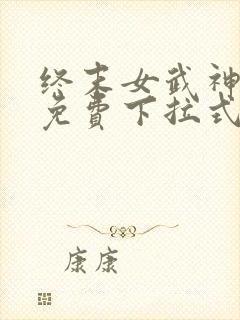 终末女武神
免費下拉式
康康